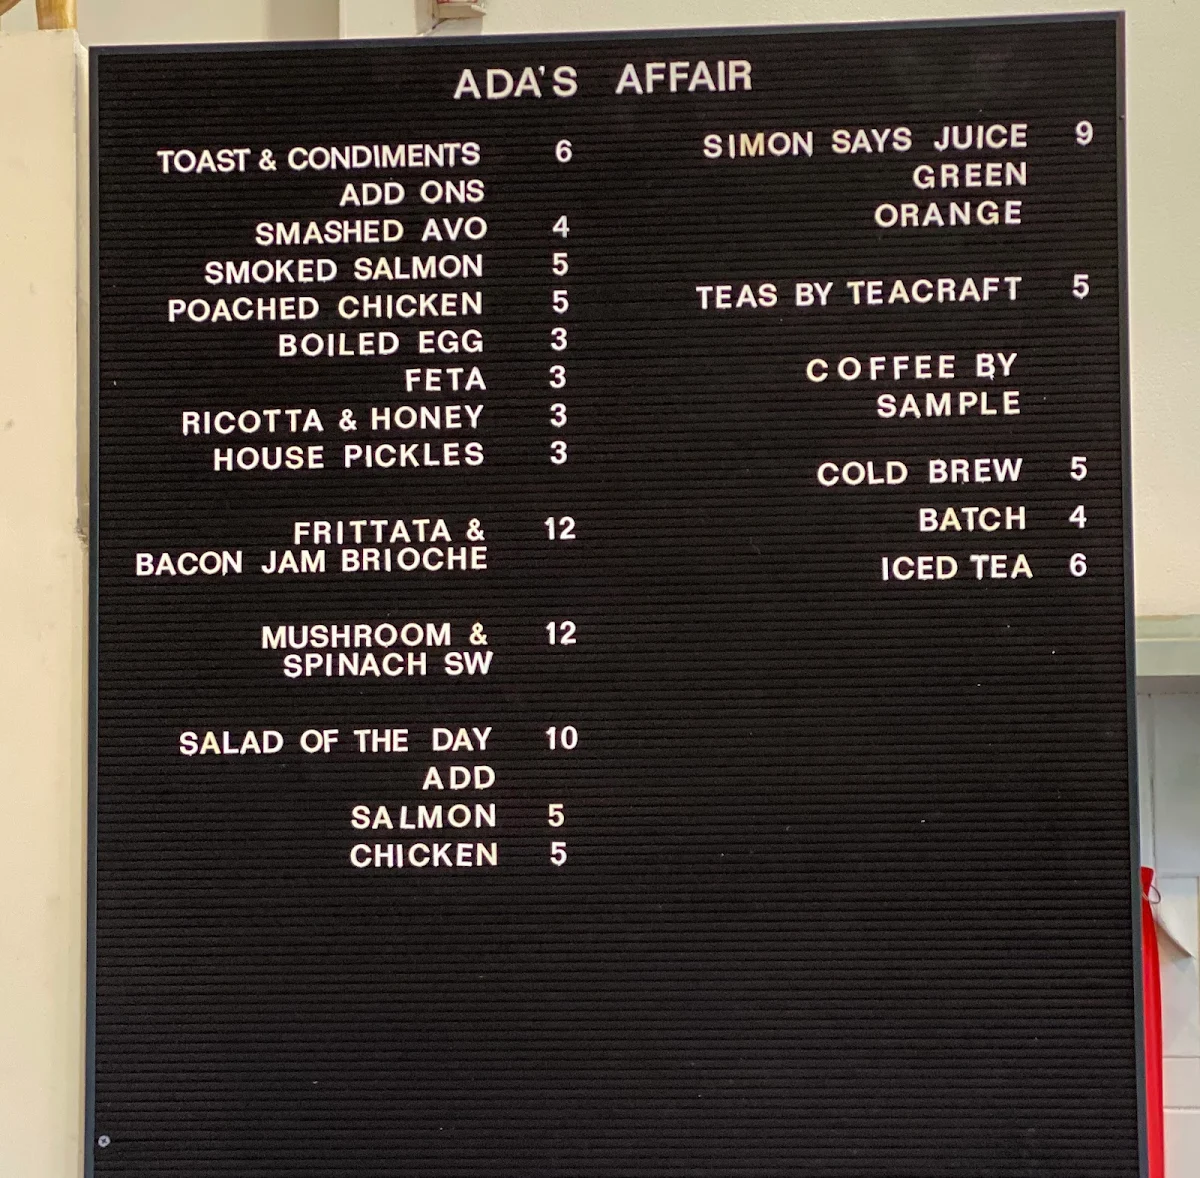 ADA'S AFFAIR
TOAST & CONDIMENTS 6
ADD ONS
SMASHED AVO 4
SMOKED SALMON 5
POACHED CHICKEN 5
BOILED EGG 3
FETA 3
RICOTTA & HONEY 3
HOUSE PICKLES 3
FRITTATA & 12
BACON JAM BRIOCHE
MUSHROOM & 12
SPINACH SW
SALAD OF THE DAY 10
ADD
SALMON 5
CHICKEN 5
SIMON SAYS JUICE 9
GREEN
ORANGE
TEAS BY TEACRAFT 5
COFFEE BY
SAMPLE
COLD BREW 5
BATCH 4
ICED TEA 6